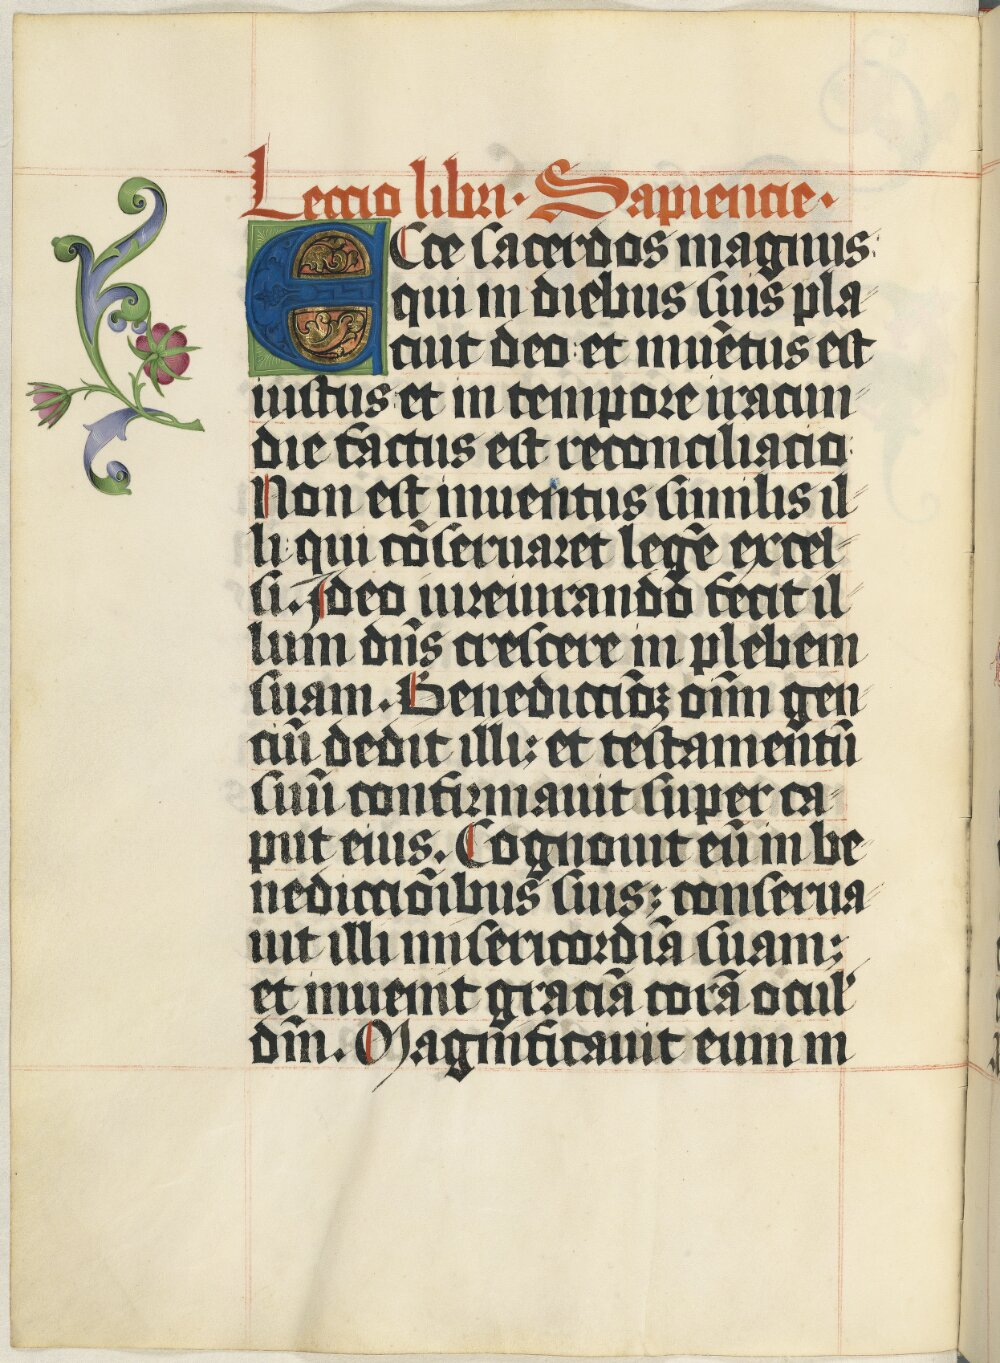 Leccio libri· Sapiencie·
Ecce sacerdos magnus
qui in diebus suis pla⸗
cuit deo: et inuētus est
iustus: et in tempore iracun⸗
die factus est reconciliacio
Non est inuentus similis il⸗
li: qui cōseruaret legē excel⸗
si. Ideo iureiurandō fecit il⸗
lum dn̄s crescere in plebem
suam. Benediccōꝫ om̄ gen⸗
ciū dedit illi; et testamentū
suū confirmauit super ca⸗
put eius. Cognouit eū in be⸗
nediccōibus suis; conserua⸗
uit illi misericordiā suam;
et inuenit graciā corā ocul'
dm̄. Magnificauit eum in